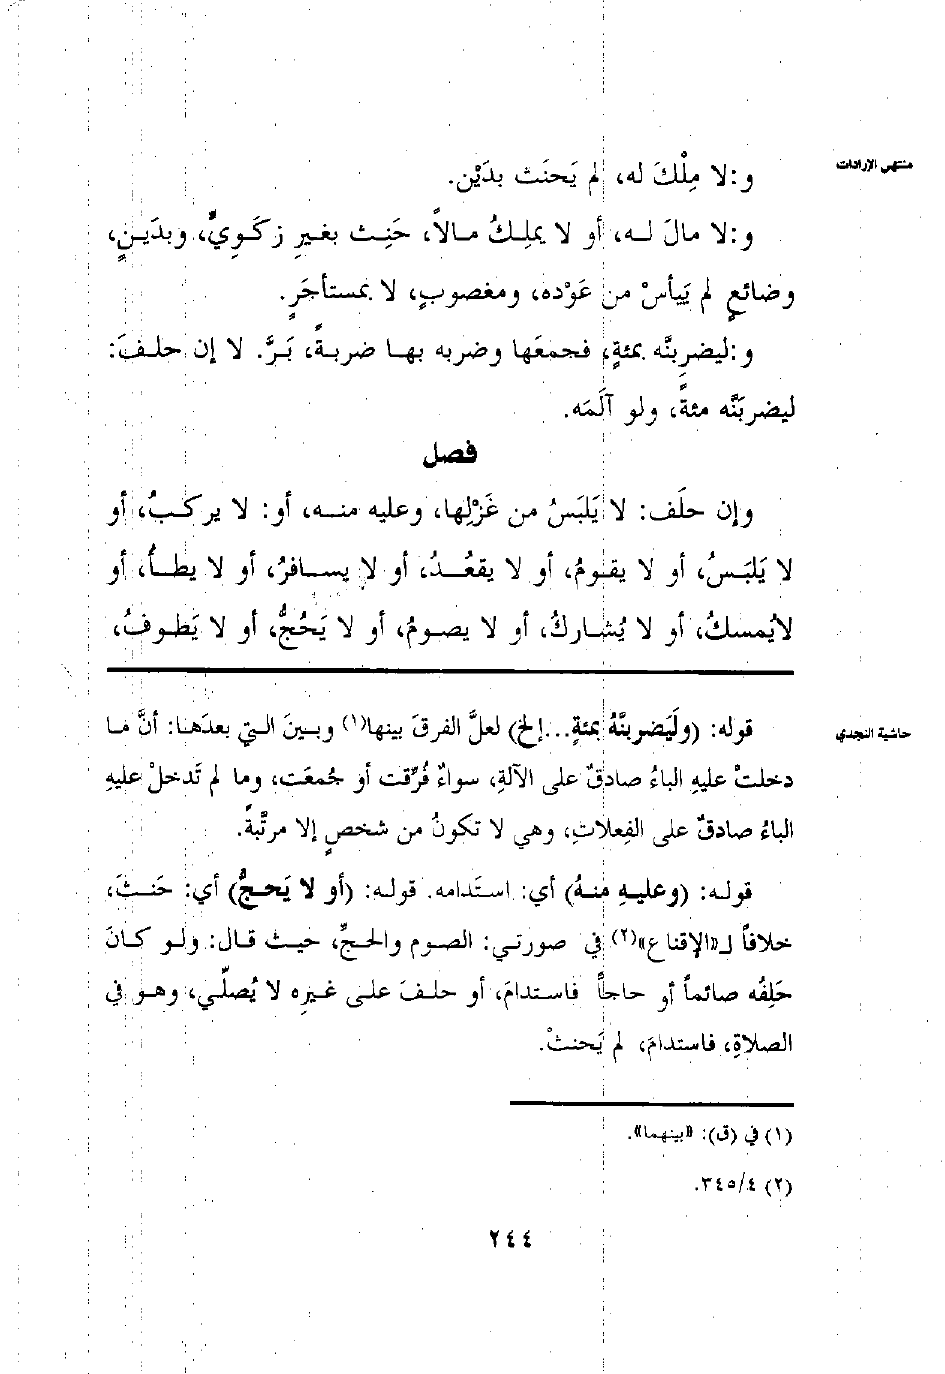 منتهى الإرادات
و:لا مِلْكَ له، لم يَحنَث بدَيْن.
و:لا مالَ لـه، أو لا يملِـكُ مـالاً، حَنِـث بغـيرِ زكـَوِيٍّ، وبدَيـنٍ،
وضائعٍ لم يَيأسْ من عَوْده، ومغصوبٍ، لا بمستأجَرٍ.
و:ليضرِبنَّه بمئةٍ، فجمعَها وضربه بهـا ضربـةً، بَـرَّ. لا إن حلـفَ:
ليضربَنَّه مئةً، ولو آلَمَه.
فصل
وإن حلَف: لا يَلبَسُ من غَزْلِها، وعليه منـه، أو: لا يركـبُ، أو
لا يَلبَـسُ، أو لا يقـومُ، أو لا يقعُـدُ، أو لا يسـافرُ، أو لا يطـأُ، أو
لايُمسكُ، أو لا يُشـاركُ، أو لا يصـومُ، أو لا يَحُـجُّ، أو لا يَطـوفُ،
حاشية النجدي
قوله: (ولَيَضربنَّهُ بمئةٍ...إلخ) لعلَّ الفرقَ بينها(١) وبـينَ الـتي بعدَهـا: أنَّ مـا
دخلتْ عليهِ الباءُ صادقٌ على الآلةِ، سواءٌ فُرِّقت أو جُمعَت، وما لم تَدخلْ عليهِ
الباءُ صادقٌ على الفِعلاتِ، وهي لا تكونُ من شخصٍ إلا مرتَّبةً.
قولـه: (وعليـهِ منـهُ) أي: استَدامه. قولـه: (أو لا يَحـجُّ) أي: حَنـثَ،
خلافاً لـ«الإقناع»(٢) في صورتي: الصـوم والحـجِّ، حيـث قـال: ولـو كـانَ
حَلِفُه صائمـاً أو حاجـاً فاسـتدامَ، أو حلـفَ علـى غـيره لا يُصلّـي، وهـو في
الصلاةِ، فاستدامَ، لم يَحنثْ.
(١) في (ق): «بينهما».
(٢) ٣٤٥/٤.
٢٤٤